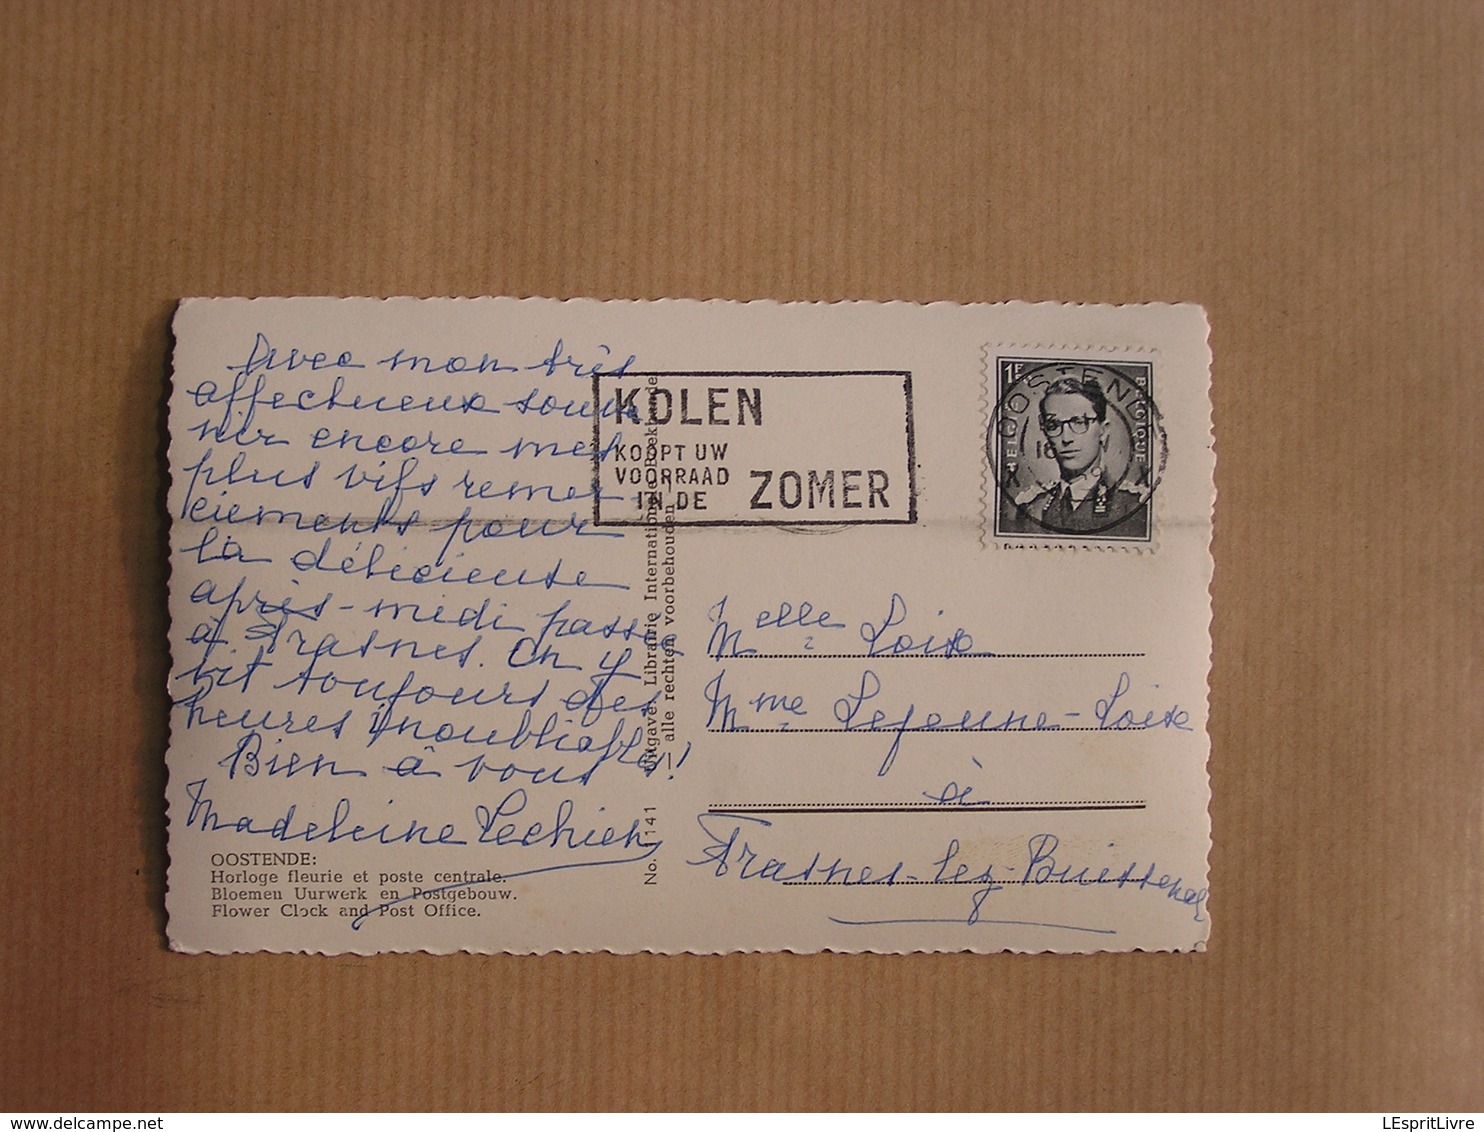 Avec mon très
affectueux souve
nir encore mes
plus vifs remer
ciements pour
la délicieuse
après-midi passée
à Frasnes. On y
vit toujours des
heures inoubliables!!
Bien à vous
Madeleine Lechien
OOSTENDE:
Horloge fleurie et poste centrale.
Bloemen Uurwerk en Postgebouw.
Flower Clock and Post Office.
No. 141 Uitgave: Librairie Internationale Boekhandel
— alle rechten voorbehouden —
KOLEN
KOOPT UW
VOORRAAD
IN DE ZOMER
1F
BELGIQUE
OOSTENDE
18
X X
Melle Loix
Mme Lejeune-Loix
à
Frasnes-lez-Buissenal
delcampe.net
LEspritLivre